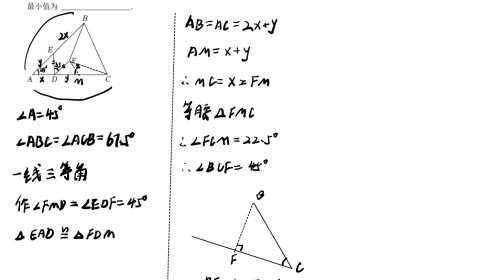 最小值为 ________.
B
2x
E
y
45°
F
A
x
D
y
M
C
∠A=45°
∠ABC=∠ACB=67.5°
一线三等角
作∠FMD=∠EDF=45°
△EAD≌△FDM
AB=AC=2x+y
AM=x+y
∴MC=x=FM
等腰△FMC
∴∠FCM=22.5°
∴∠BCF=45°
B
F
C